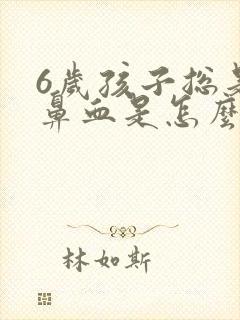 6歲孩子總是
鼻血是怎麼
林如斯